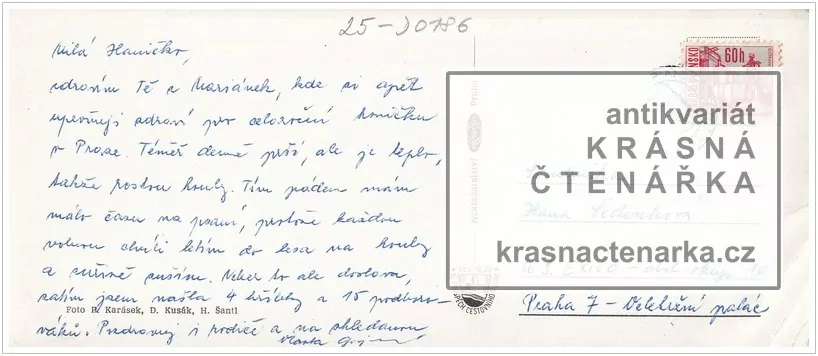 25-)0186
Milá Haničko,
zdravím Tě z Mariánek, kde si opět
upevňuji zdraví po celoroční
v Praze. Téměř denně prší, ale je teplo,
takže rostou houby. Tím pádem mám
málo času na psaní, protože každou
volnou chvíli letím do lesa na houby
a zuřivě suším. Neber to ale doslova,
zatím jsem našla 4 hříbky a 15 podboro-
váků. Pozdravuj i rodiče a na shledanou
Vlasta
Foto B. Karásek, D. Kusák, H. Šantl
60h
Praha
antikvariát
KRÁSNÁ
ČTENÁŘKA
krasnactenarka.cz
Hana
10
Praha 7 - Veletržní palác